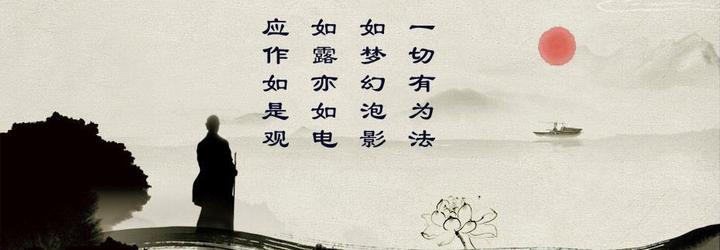 一切有为法
如梦幻泡影
如露亦如电
应作如是观